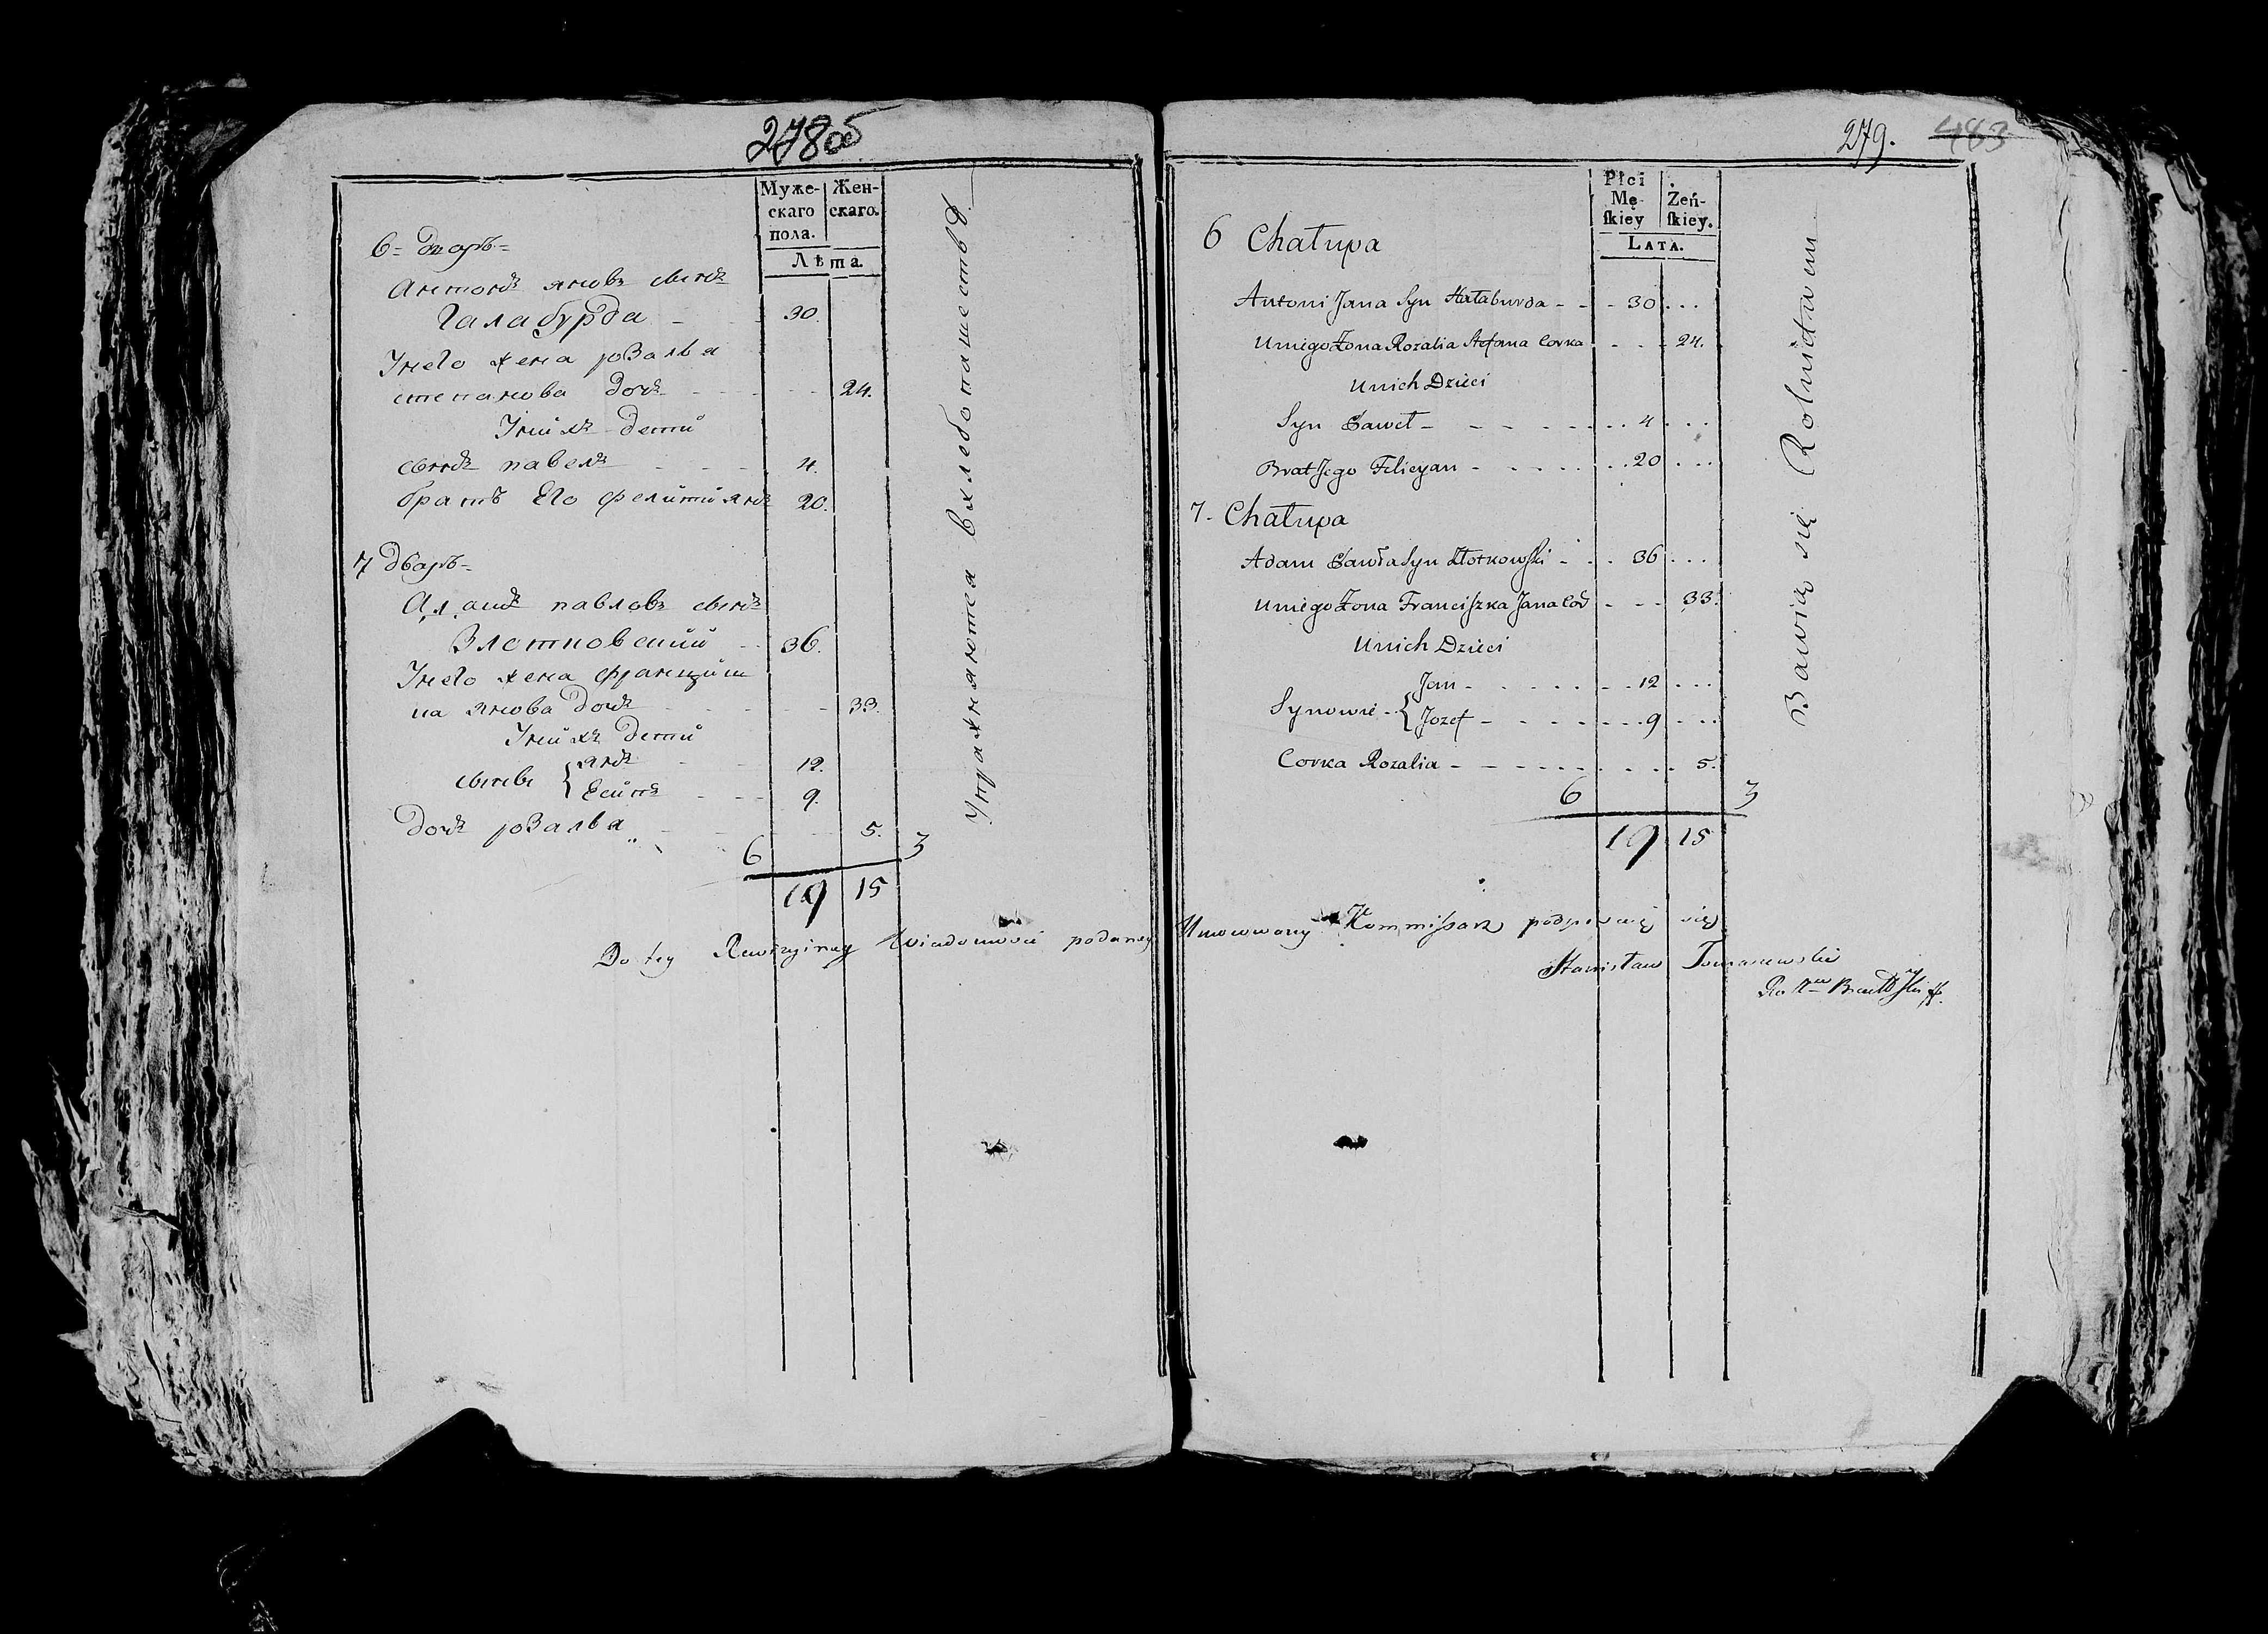 278об
Муже- Жен-
скаго скаго.
пола.
Лѣта.
6 = дворъ =
Антонъ яновъ сынъ
Галабурда - - 30.
Унего жена розалья
степанова дочь - - - - 24.
Унихъ дети
сынъ павелъ - - - 4.
братъ Его фелитиянъ 20.
7 дворъ =
Адамъ павловъ сынъ
Злотковский - - 36.
Унего жена францишка
на янова дочь - - - 33.
Унихъ дети
сыны { янъ - - 12.
Есипъ - - - 9.
дочь розалья - - - 5.
6 3
19 15
Упражняются вхлебопашествѣ
279. 483
Płci Żeń-
Mę- ſkiey.
ſkiey
LATA.
6 Chałupa
Antoni Jana Syn Hałaburda - - - 30 . . .
Uniego Żona Rozalia Stefana Corka - - - 24.
Unich Dzieci
Syn Paweł - - - - - - . . 4 . . .
Brat Jego Felicyan - - - - - . . 20 . . .
7 - Chałupa
Adam Pawła Syn Złotkowſki - - . 36 . . .
Uniego Żona Franciſzka Jana Cor - - - 33.
Unich Dzieci
Synowie - { Jan - - - - - - - 12 . . .
Jozef - - - - - - - 9 . . .
Corka Rozalia - - - - - - - - - 5.
6 3
19 15
Bawią się Rolnictwem
Do tey Rewizyiney Wiadomości podaney Umocowany Kommiſsarz podpisuię się
Stanisław Tomaszewski